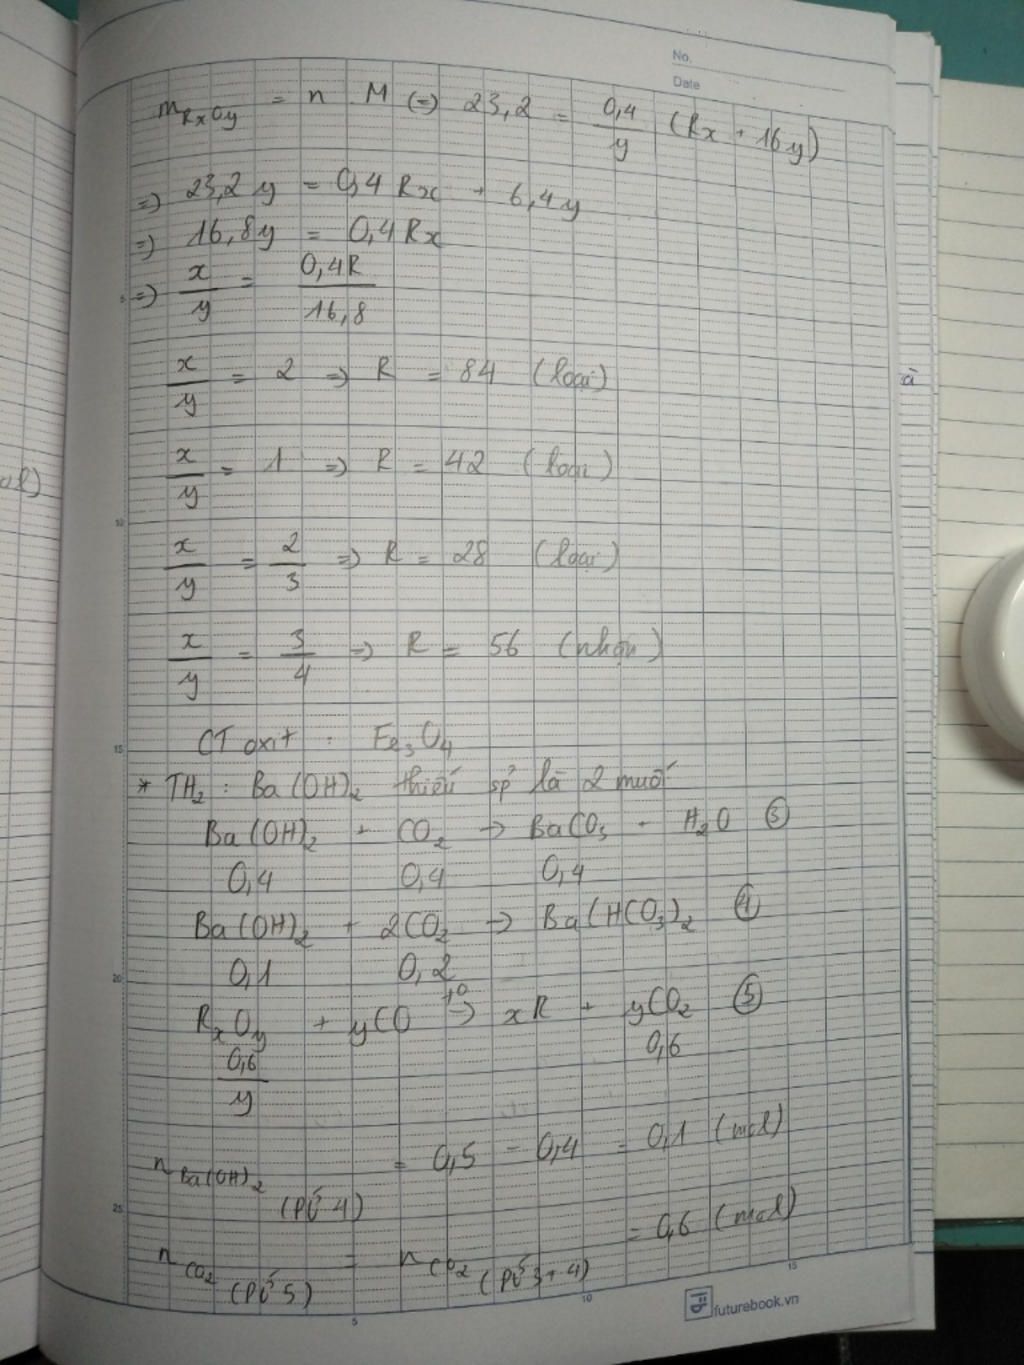 No.
Date
m RxOy = n M (=) 23,2 = 0,4/y (Rx + 16y)
=) 23,2 y = 0,4 Rx + 6,4y
=) 16,8y = 0,4 Rx
=) x/y = 0,4R/16,8
x/y = 2 =) R = 84 (loại)
x/y = 1 =) R = 42 (loại)
x/y = 2/3 =) R = 28 (loại)
x/y = 3/4 =) R = 56 (nhận)
CT oxit : Fe₃O₄
* TH₂ : Ba(OH)₂ thiếu sp' là 2 muối
Ba(OH)₂ + CO₂ → BaCO₃ + H₂O ③
0,4 0,4 0,4
Ba(OH)₂ + 2CO₂ → Ba(HCO₃)₂ ④
0,1 0,2
RxOy + yCO →(t°) xR + yCO₂ ⑤
0,6/y 0,6
n Ba(OH)₂ (PƯ 4) = 0,5 - 0,4 = 0,1 (mol)
n CO₂ (PƯ 5) = n CO₂ (PƯ 3+4) = 0,6 (mol)
5
10
15
20
25
5
10
15
futurebook.vn
à